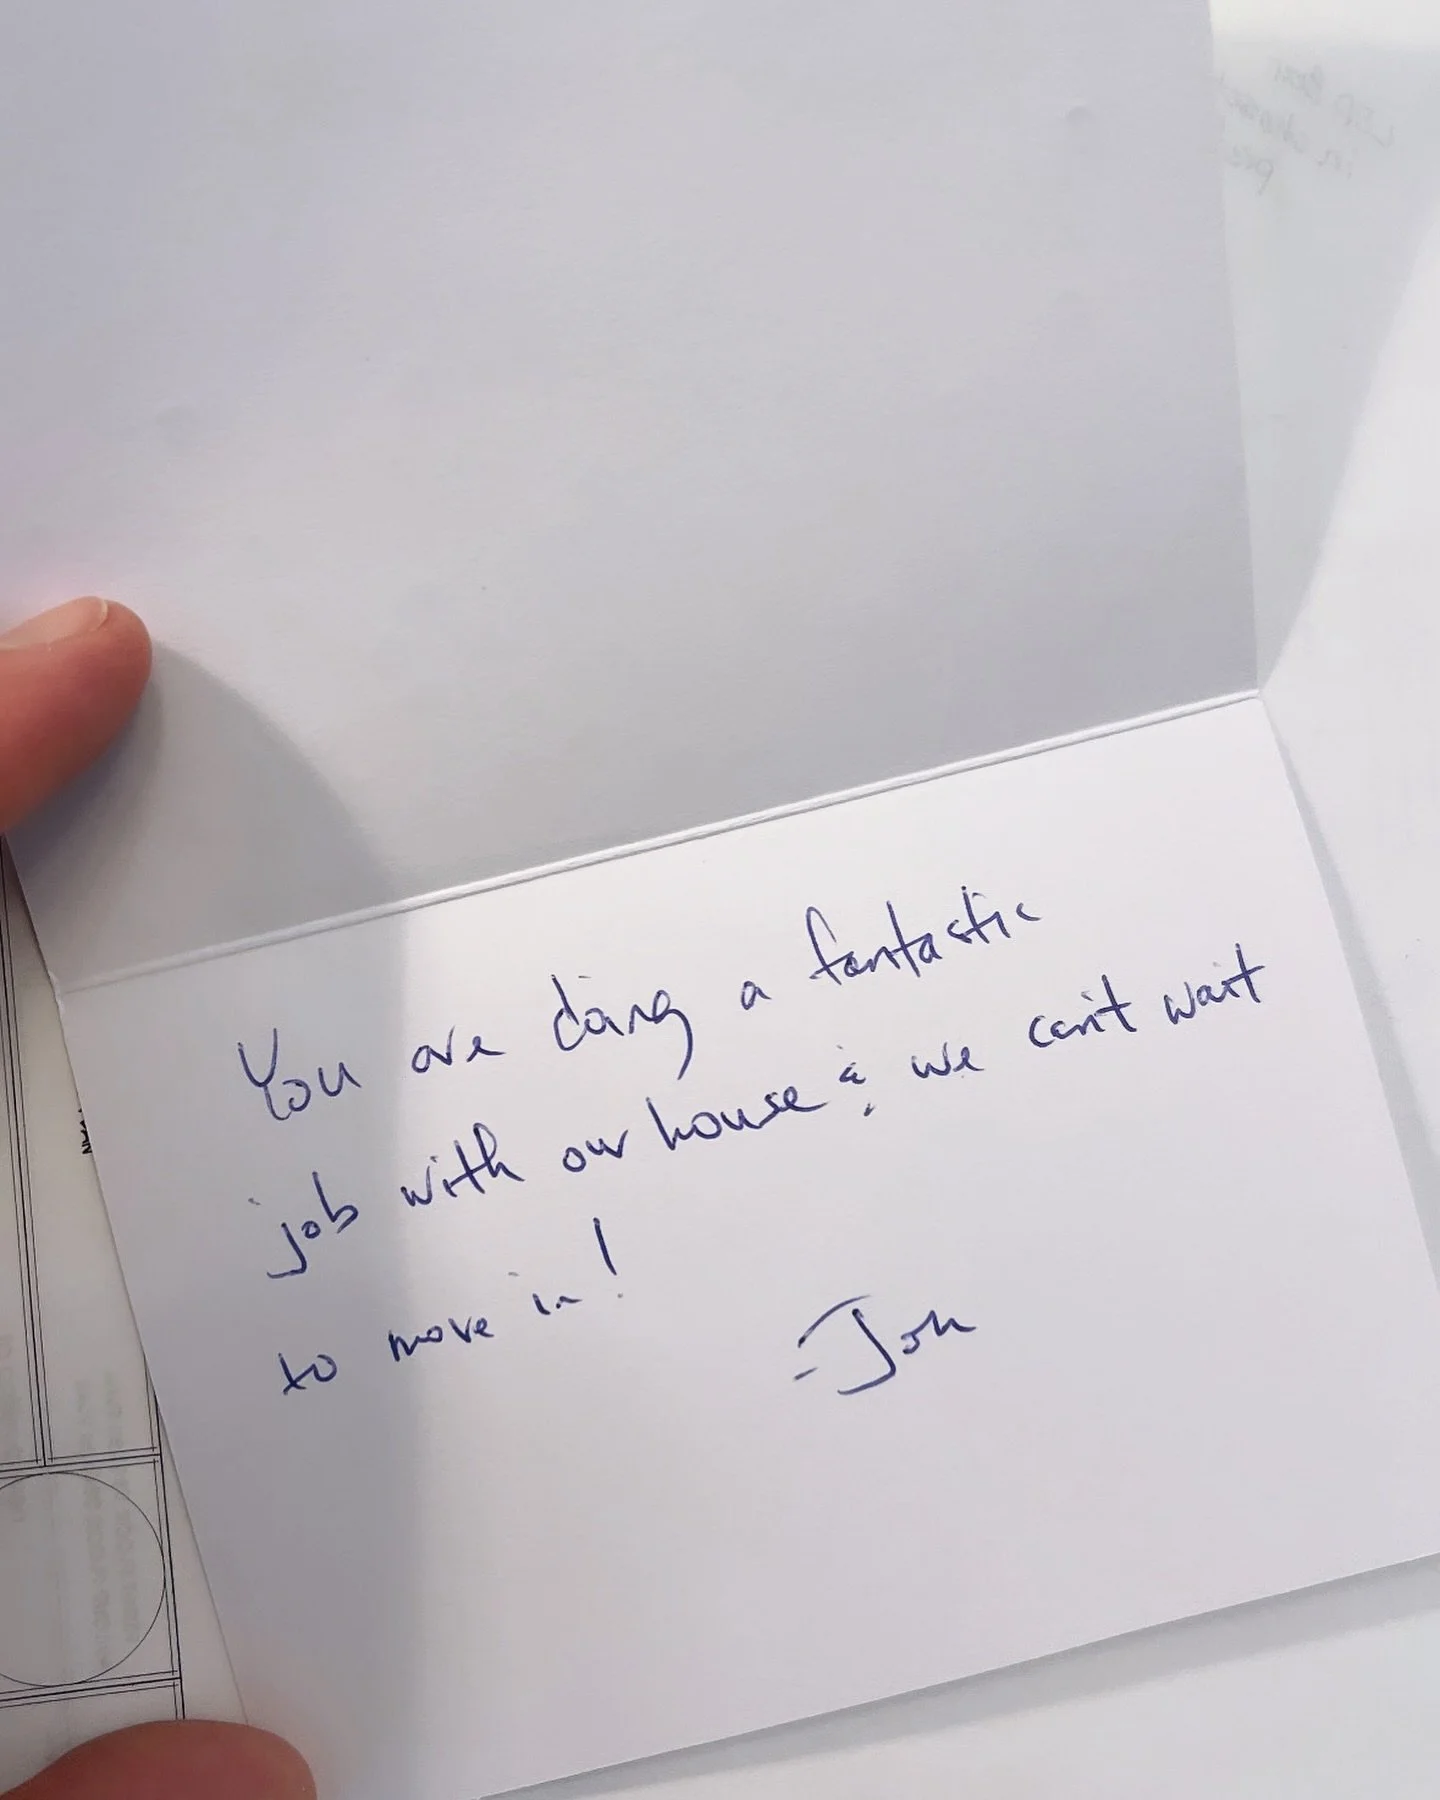 You are doing a fantastic
job with our house & we can't wait
to move in!
-Jon